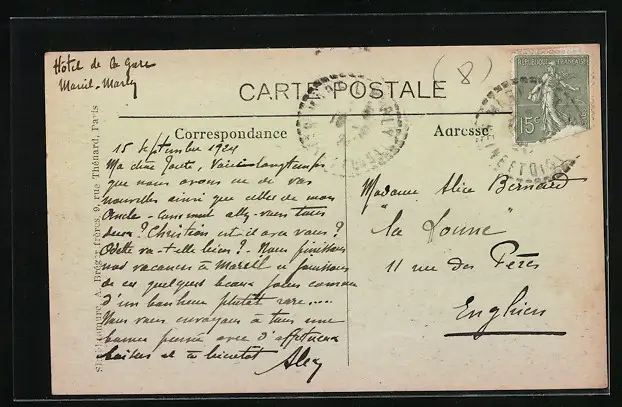 Hôtel de la Gare
Mareil-Marly
(8)
CARTE POSTALE
Correspondance
Adresse
REPUBLIQUE FRANÇAISE
15c
15 Septembre 1924
Ma chère Tante, Voici longtemps
que nous avons eu de vos
nouvelles ainsi que celles de mon
Oncle - Comment allez-vous tous
deux? Christian est-il avec vous?
Odette va-t-elle bien? - Nous finissons
nos vacances à Mareil et jouissons
de ces quelques beaux jours comme
d'un bonheur plutôt rare.....
Nous vous envoyons à tous une
bonne pensée avec d'affectueux
baisers et à bientôt Alex
Madame Alice Bernard
"La
11 rue des Pères
Enghien
A. Bréger frères, 9, rue Thénard, Paris